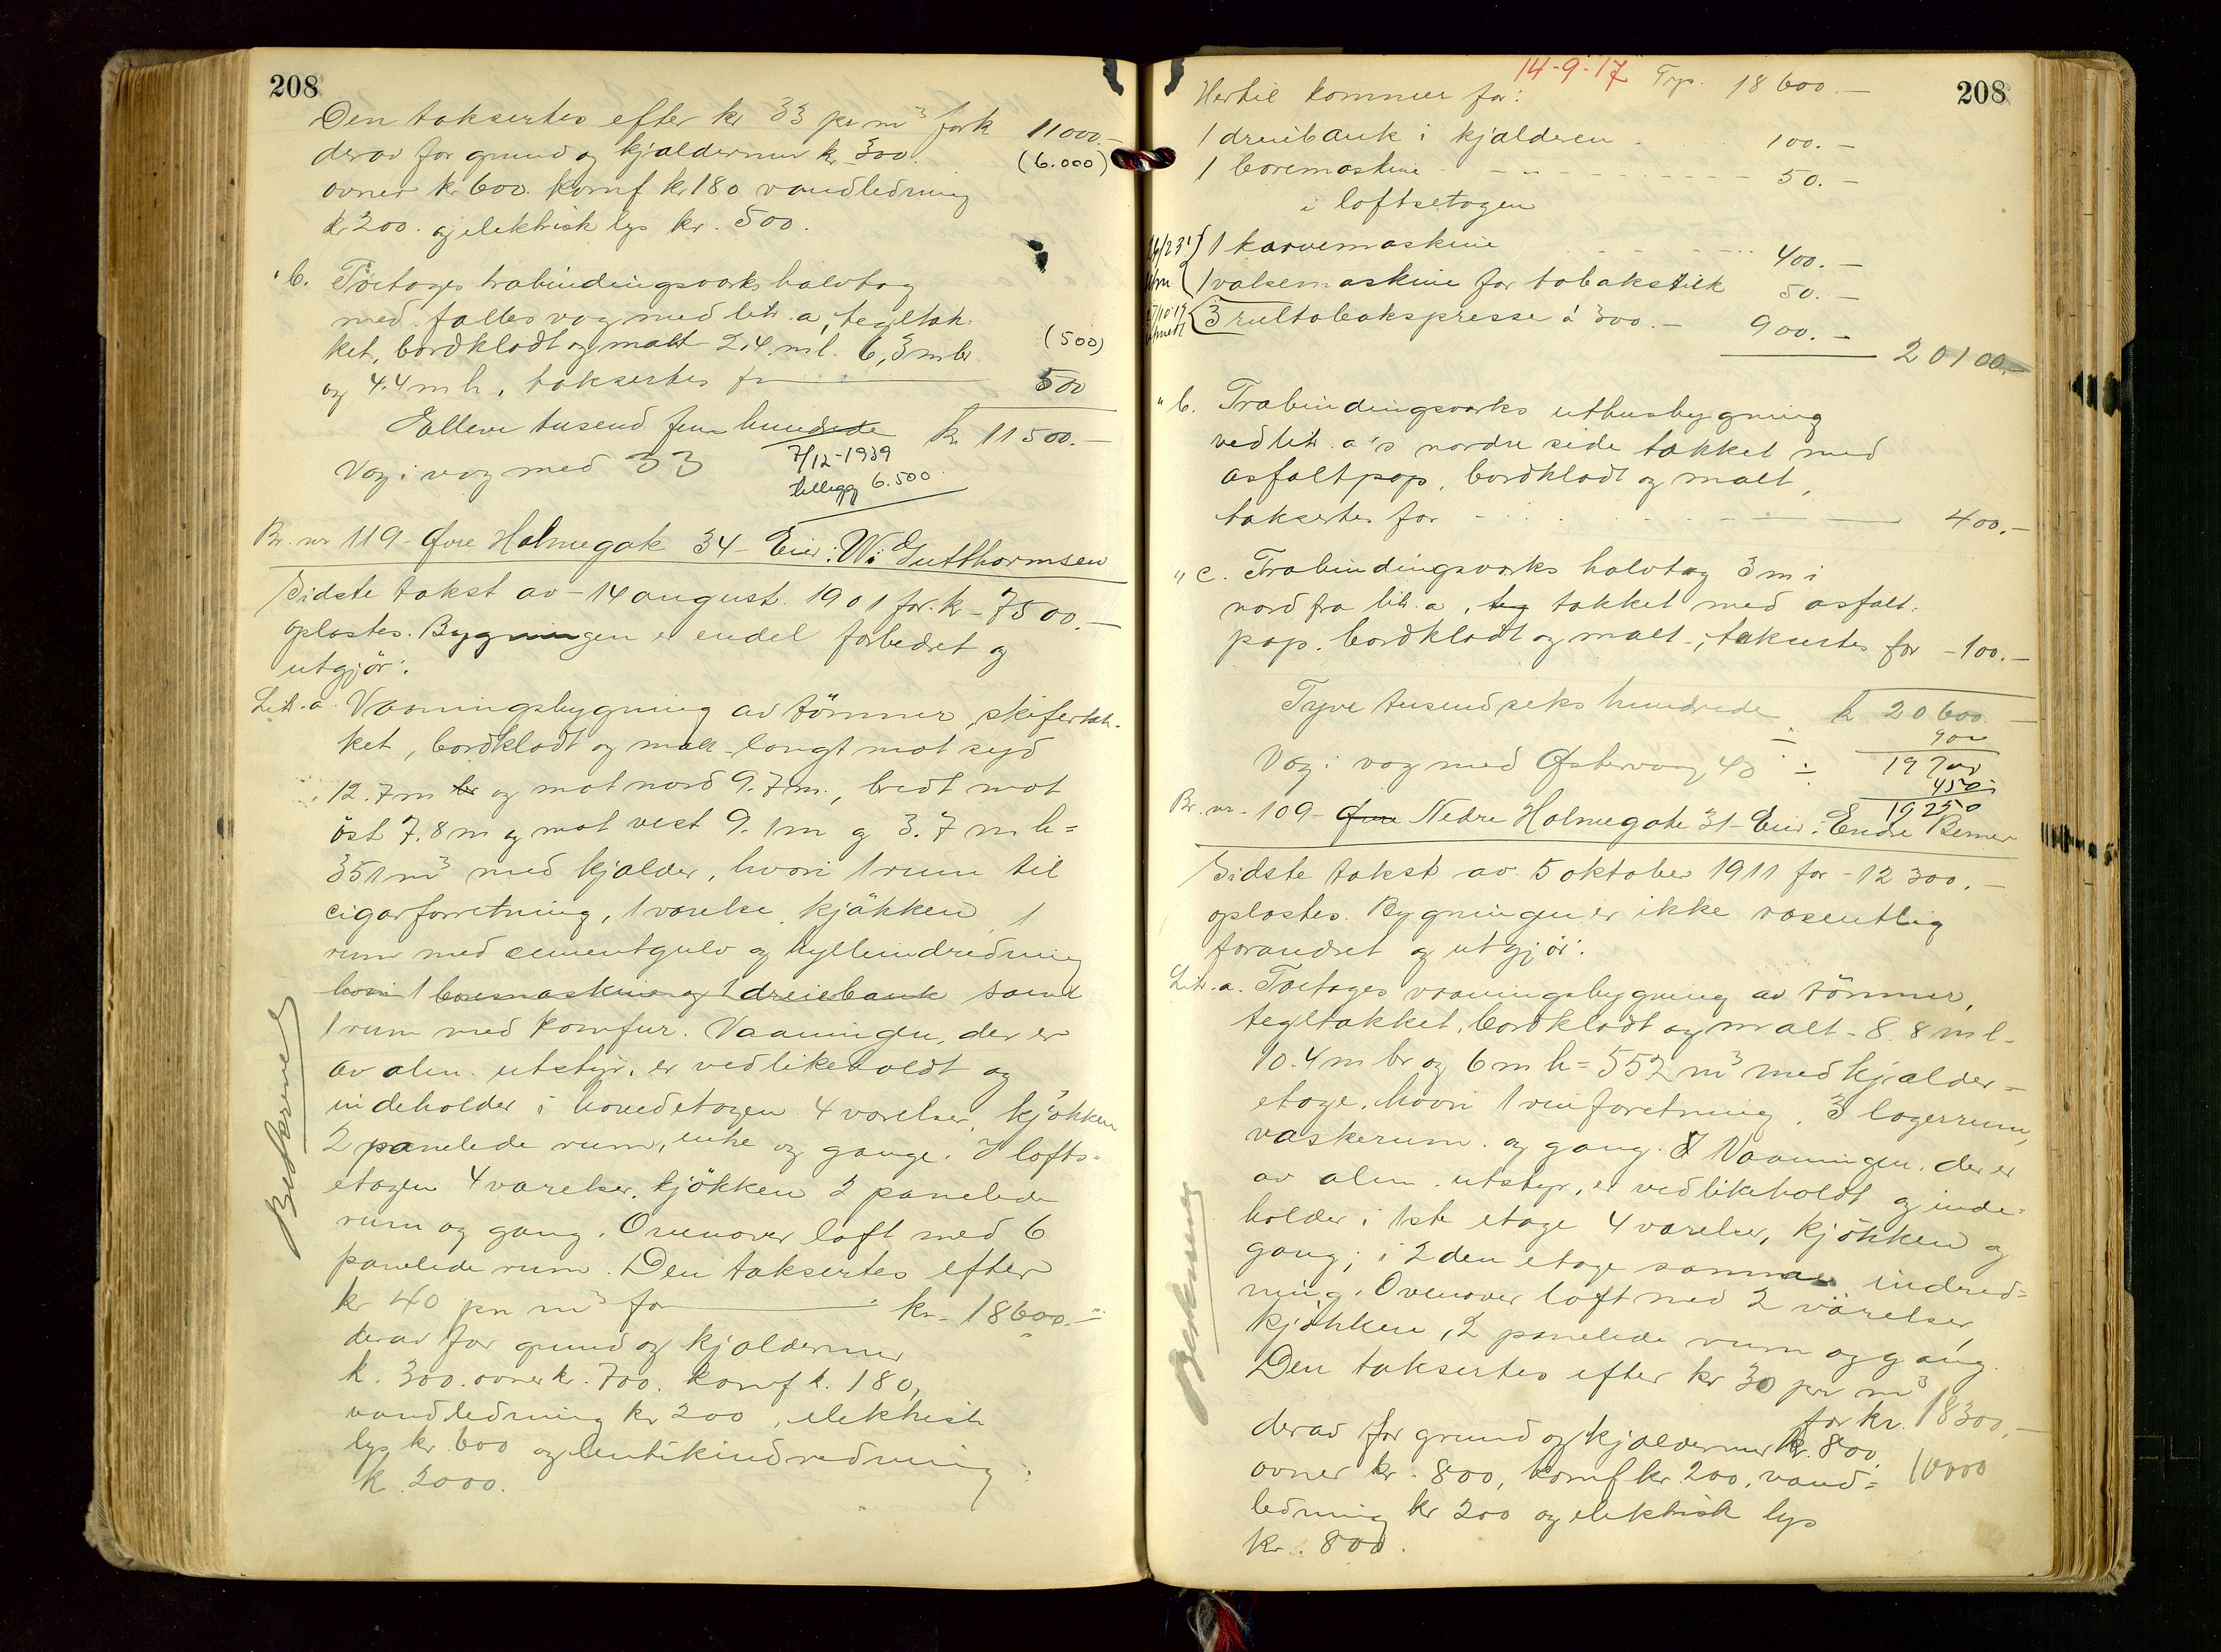 208
Den taksertes efter kr 33 pr m³ for k 11000.-
derav for grund og kjældermur kr 300. (6.000)
ovner kr 600. komf kr 180 vandledning
kr 200. og elektrisk lys kr. 500.
" b. Toetages træbindingsverks halvtag
med fælles væg med litr. a, tegltæk-
ket, bordklædt og malt 2,4 m l. 6,3 m br (500)
og 4.4 m h, taksertes for 500
Elleve tusend fem hundrede kr 11500.-
Væg i væg med 33
7/12-1939
tillegg 6.500
Br. nr 119 - Øvre Holmegate 34 - Eier: W. Gutthormsen
Sidste takst av - 14 august 1901 for kr - 7500.-
oplæstes. Bygningen er endel forbedret og
utgjör:
Litr. a. Vaaningsbygning av tömmer, skifertæk-
ket, bordklædt og malt - langt mot syd
12.7 m br og mot nord 9.7 m., bredt mot
öst 7.8 m og mot vest 9.1 m og 3.7 m h =
351 m³ med kjælder, hvori 1 rum til
cigarforretning, 1 værelse, kjökken, 1
rum med cementgulv og hylleindredning
hvori 1 boremaskine og 1 dreiebænk samt
1 rum med komfur. Vaaningen, der er
av alm. utstyr, er vedlikeholdt og
indeholder i hovedetagen 4 værelser, kjökken
2 panelede rum, entre og gange. I lofts-
etagen 4 værelser, kjökken 2 panelede
rum og gang. Ovenover loft med 6
panelede rum. Den taksertes efter
kr 40 pr m³ for kr - 18600.-
derav for grund og kjældermur
k. 300. ovner kr. 700. komf k. 180,
vandledning kr 200, elektrisk
lys kr 600 og butikindredning
k 2000.
Beskrevne
14-9-17
208
Hertil kommer for: Trp. 18600.-
1 dreiebænk i kjælderen 100.-
1 boremaskine 50.-
i loftsetagen
1 karvemaskine 400.-
1 valsemaskine for tobakstilk 50.-
3 rultobakspresse á 300.- 900.-
20100.-
" b. Træbindingsverks uthusbygning
ved litr. a's nordre side tækket med
asfaltpap, bordklædt og malt,
taksertes for 400.-
" c. Træbindingsverks halvtag 3 m i
nord fra litr. a, teg tækket med asfalt-
pap, bordklædt og malt -, taksertes for - 100.-
Tyve tusend seks hundrede k 20600.-
÷ 900
Væg i væg med Østervaag 43 19700
÷ 450
19250
Br. nr. 109 - Øvre Nedre Holmegate 31 - Eier: Endre Berner
Sidste takst av 5 oktober 1911 for - 12300.-
oplæstes. Bygningen er ikke væsentlig
forandret og utgjör:
Litr. a. Toetages vaaningsbygning av tömmer,
tegltækket, bordklædt og malt - 8.8 m l -
10.4 m br og 6 m h = 552 m³ med kjælder-
etage, hvori 1 vinforretning, 3 lagerrum,
vaskerum og gang. Vaaningen, der er
av alm. utstyr, er vedlikeholdt og inde-
holder i 1ste etage 4 værelser, kjökken og
gang; i 2den etage samme indred-
ning. Ovenover loft med 2 værelser,
kjökken, 2 panelede rum og gang.
Den taksertes efter kr 30 pr m³
for kr. 18300.-
derav for grund og kjældermur kr. 800.
ovner kr. 800, komf kr 200, vand- 10000
ledning kr 200 og elektrisk lys
kr. 800.